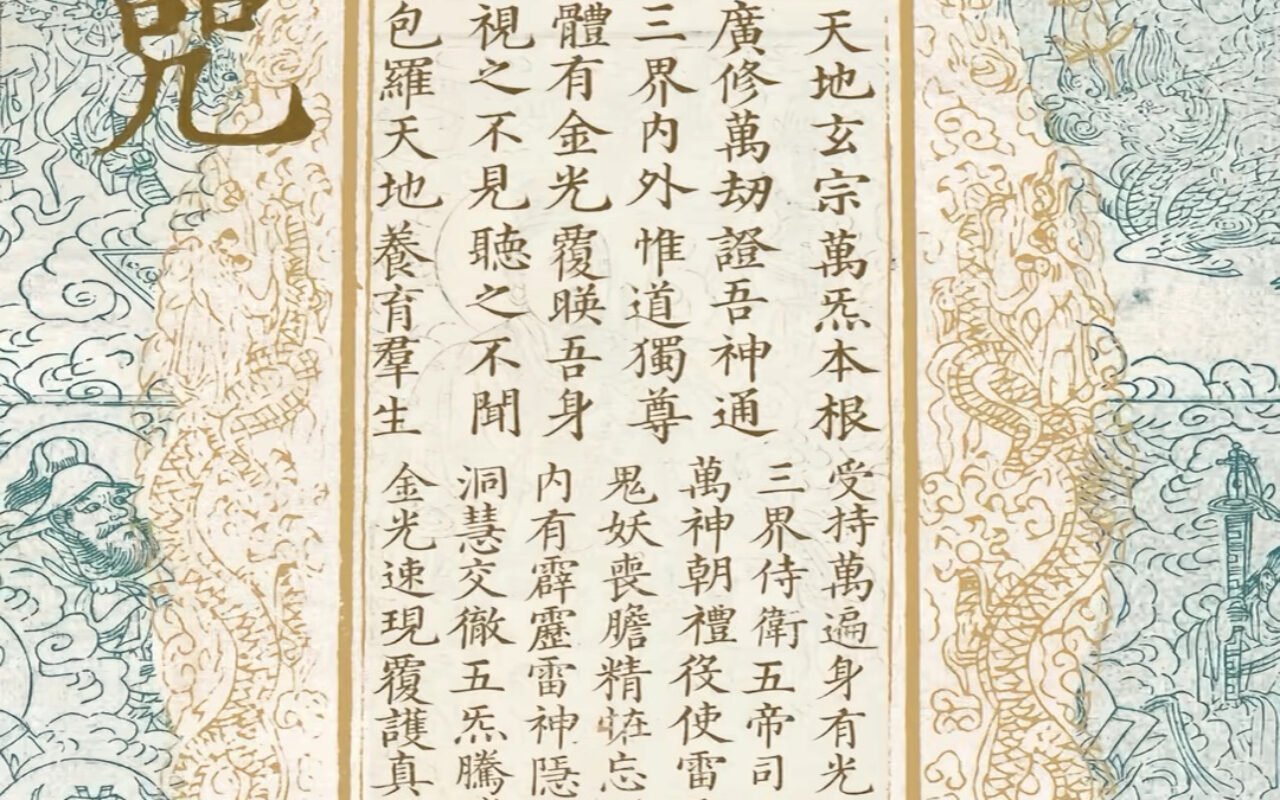 天地玄宗萬炁本根
廣修萬刼證吾神通
三界内外惟道獨尊
體有金光覆暎吾身
視之不見聽之不聞
包羅天地養育羣生
受持萬遍身有光
三界侍衛五帝司
萬神朝禮役使雷
鬼妖喪膽精恠忘
内有霹靂雷神隱
洞慧交徹五炁騰
金光速現覆護真
咒